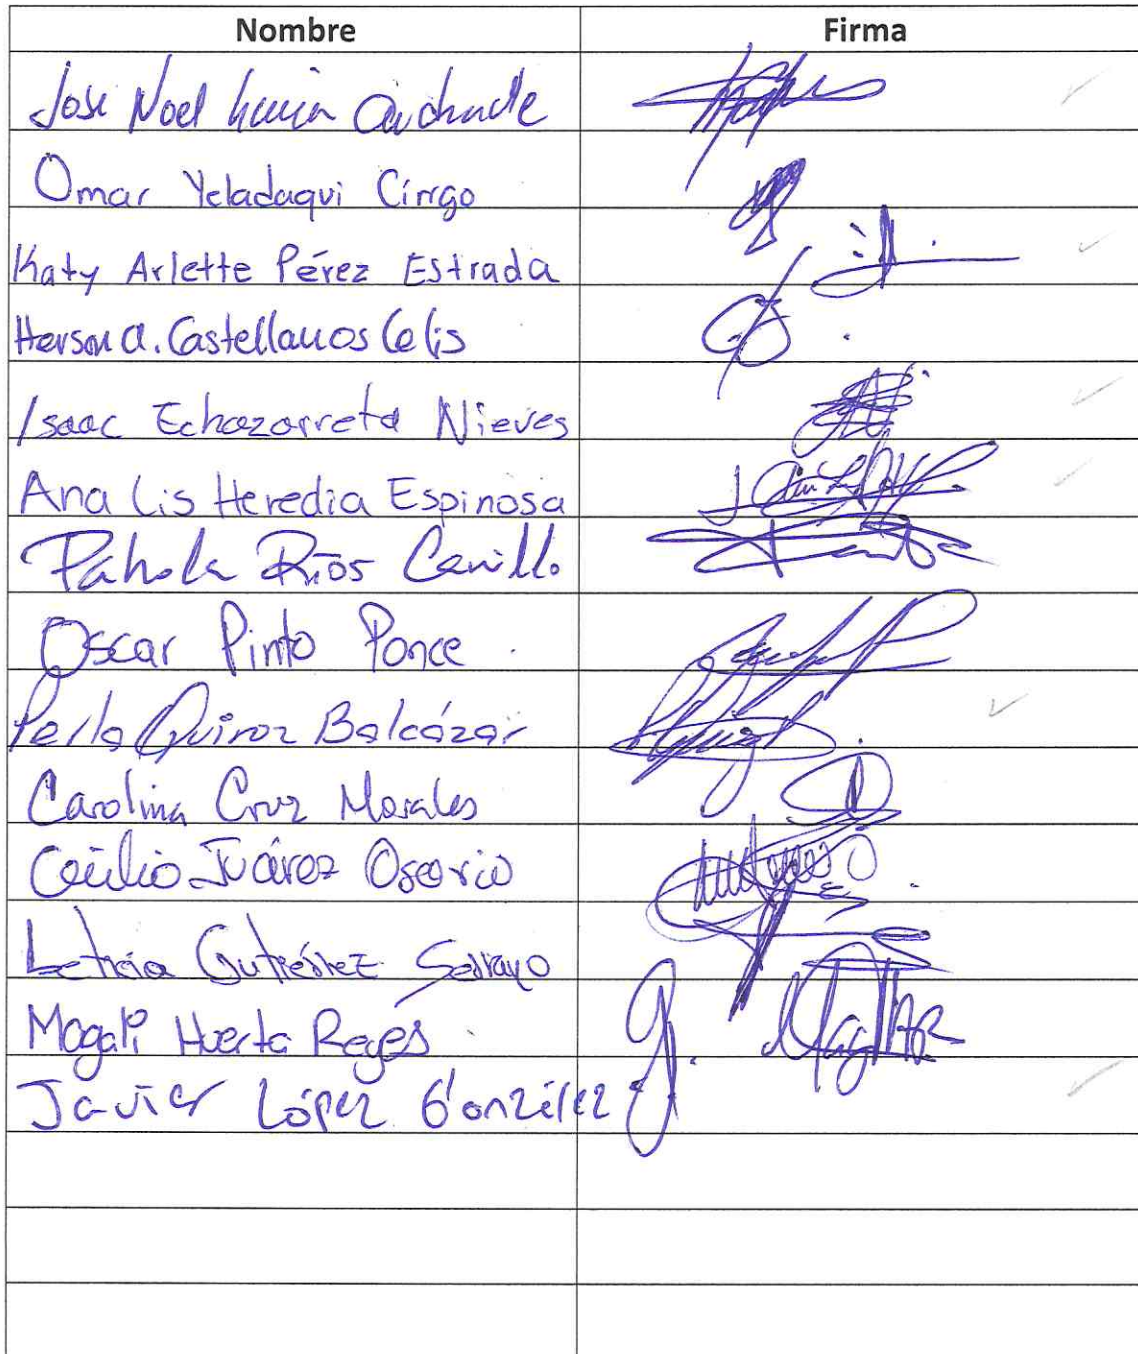 Nombre Firma
José Noel Andrade
Omar Yeladaqui Cirigo
Katy Arlette Pérez Estrada
Herson A. Castellanos Celis
Isaac Echazarreta Nieves
Ana Lis Heredia Espinosa
Pahola Ríos
Oscar Pinto Ponce
Perla Quiroz Balcázar
Carolina Cruz Morales
Cecilio Juárez Osorio
Leticia Gutiérrez
Magali Huerta Reyes
Javier López González